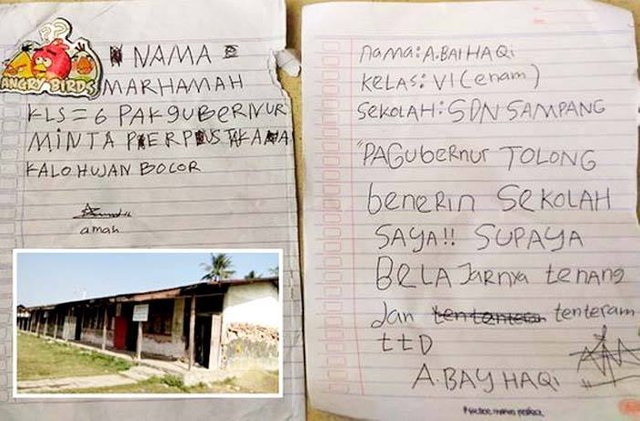 ANGRY BIRDS
NAMA =
MARHAMAH
KLS = 6 PAKGUBERNUR
MINTA PERPUSTAKAAN
KALO HUJAN BOCOR
amah
nama: A.BAI HAQi
KELAS: VI (enam)
SEKOLAH: SDN SAMPANG
"PAGubernur TOLONG
benerin SEKOLAH
SAYA!! SUPAYA
BELAJARnya tenang
dan tenteram
ttD
A.BAY HAQi